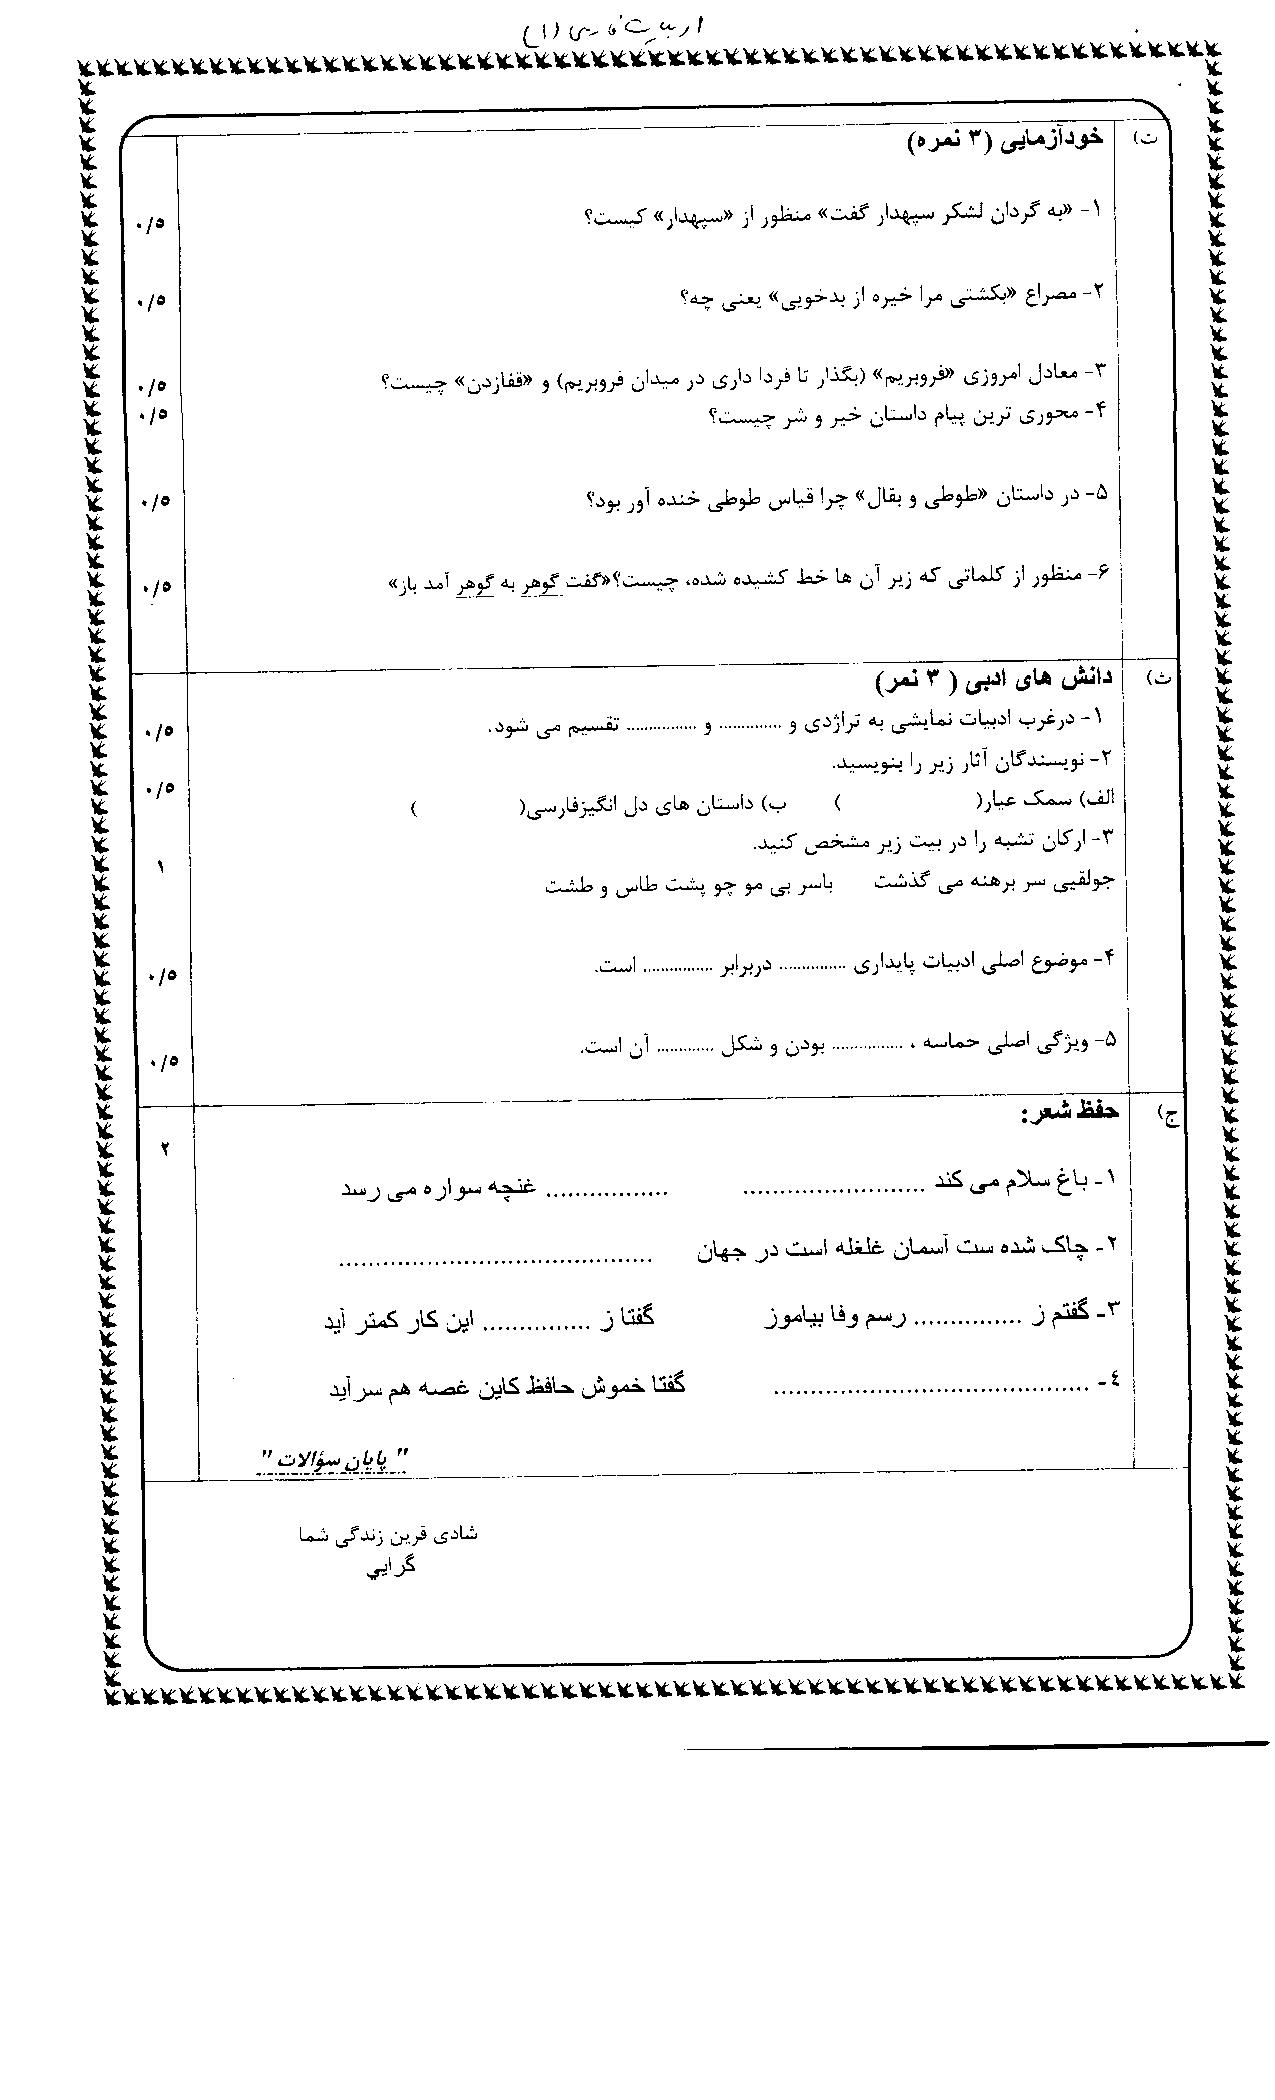 ادبیات فارسی (۱)
ت) خودآزمایی (۳ نمره)
۱- «به گردان لشکر سپهدار گفت» منظور از «سپهدار» کیست؟ ۰/۵
۲- مصراع «بکشتی مرا خیره از بدخویی» یعنی چه؟ ۰/۵
۳- معادل امروزی «فروبریم» (بگذار تا فردا داری در میدان فروبریم) و «قفازدن» چیست؟ ۰/۵
۴- محوری ترین پیام داستان خیر و شر چیست؟ ۰/۵
۵- در داستان «طوطی و بقال» چرا قیاس طوطی خنده آور بود؟ ۰/۵
۶- منظور از کلماتی که زیر آن ها خط کشیده شده، چیست؟«گفت گوهر به گوهر آمد باز» ۰/۵
ث) دانش های ادبی ( ۳ نمر)
۱- درغرب ادبیات نمایشی به تراژدی و .............. و ................ تقسیم می شود. ۰/۵
۲- نویسندگان آثار زیر را بنویسید.
الف) سمک عیار( ) ب) داستان های دل انگیزفارسی( ) ۰/۵
۳- ارکان تشبه را در بیت زیر مشخص کنید.
جولقیی سر برهنه می گذشت باسر بی مو چو پشت طاس و طشت ۱
۴- موضوع اصلی ادبیات پایداری ............... دربرابر ................ است. ۰/۵
۵- ویژگی اصلی حماسه ، ................ بودن و شکل ............. آن است. ۰/۵
ج) حفظ شعر: ۲
۱- باغ سلام می کند ......................... ................. غنچه سواره می رسد
۲- چاک شده ست آسمان غلغله است در جهان ...........................................
۳- گفتم ز ............... رسم وفا بیاموز گفتا ز ............... این کار کمتر آید
٤- ........................................... گفتا خموش حافظ کاین غصه هم سر آید
" پایان سؤالات "
شادی قرین زندگی شما
گرایي